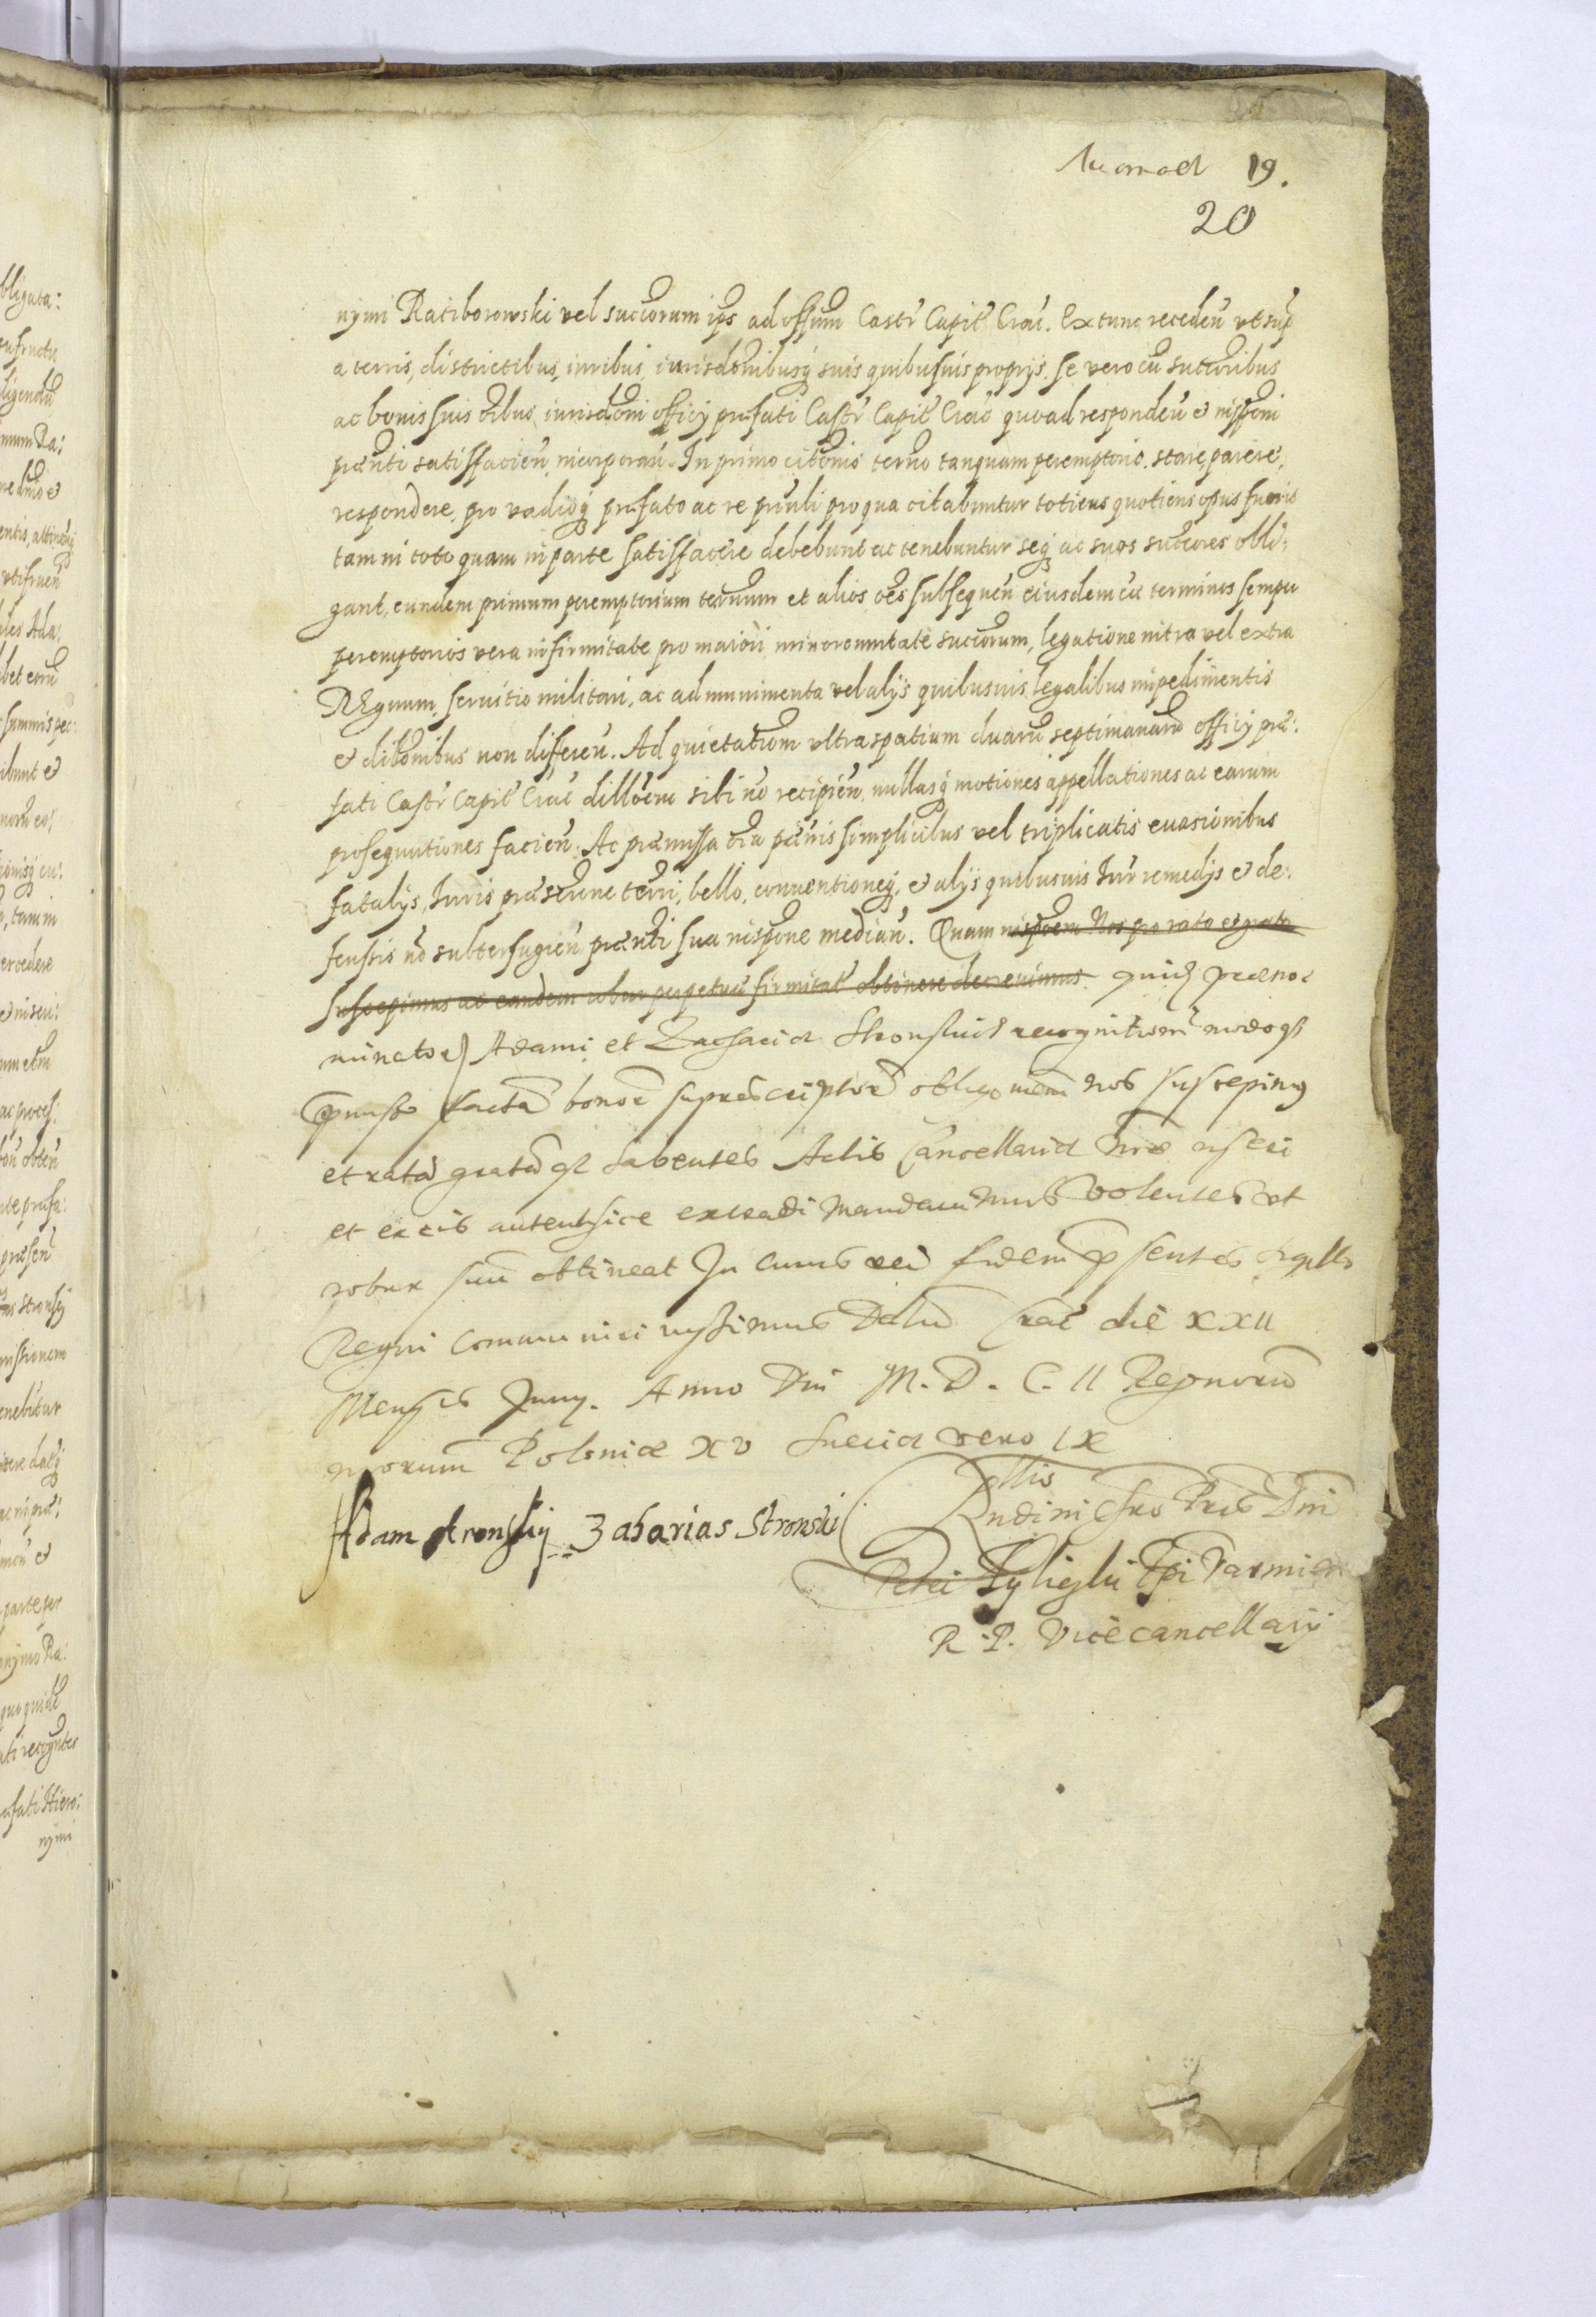 19.
20
nymi Ratiborowski vel succorum ips ad offium Castr Capit Crac. Extunc receden ut sup
a terris, districtibus, iuribus, iurisdonibusq suis quibusuis proprijs. se vero cu succoribus
ac bonis suis oibus iurisdoni officij præfati Castr Capit Crac quoad responden et inscponi
præsenti satisfacien, incorporan. In primo citonis termo tanquam peremptorio. stare, parere,
respondere, pro vadioq præfato ac re prncli pro qua citabuntur toties quotiens opus fuerit
tam in toto quam in parte satisfacere debebunt ac tenebuntur seq ac suos succores obli:
gant, eundem primum peremptorium termum et alios oes subsequen eiusdem cæ terminos semper
peremptorios vera infirmitate pro maiori, minorennitate succorum, legatione intra vel extra
REgnum, seruitio militari, ac ad munimenta vel alijs quibusuis legalibus impedimentis
et dilonibus non differen. Ad quietationem ultra spatium duaru septimanaru officij præ:
fati Castr Capit Crac dilloem sibi no recipien, nullasq motiones appellationes ac earum
prosequutiones facien. Ac præmissa oia pænis simplicibus vel triplicatis euasionibus
fatalijs, Iuris præscrione terri, bello, conuentioneq, et alijs quibusuis Iur remedijs et de:
fensis no subterfugien præsenti sua inscpone median. Quam inscpoem Nos pro rato et grato
suscepimus ac eandem robur perpetuæ firmitat obtinere decreuimus. quiq præno:
minator Adami et Zachariæ Stronskich recognitionem modoq
præmisso factam bonor suprascriptor obligonem nos suscepimus
et ratam gratamq habentes Actis Cancellariæ nræ inseri
et ex eis autentice extradi mandauimus volentes ut
robur suu obtineat In cuius rei fidem præsentes sigillo
Regni communiri iussimus Datu Crac die XXII
Mensis Iunij. Anno Dni M. D. C. II Regnoru
nrorum Poloniæ XV Sueciæ vero IX
Adam stronskij Zaharias Stronski
Rndi in Chro Pris Dni
Petri Tylicki Epi Varmien
R. P. Vicecancellarij